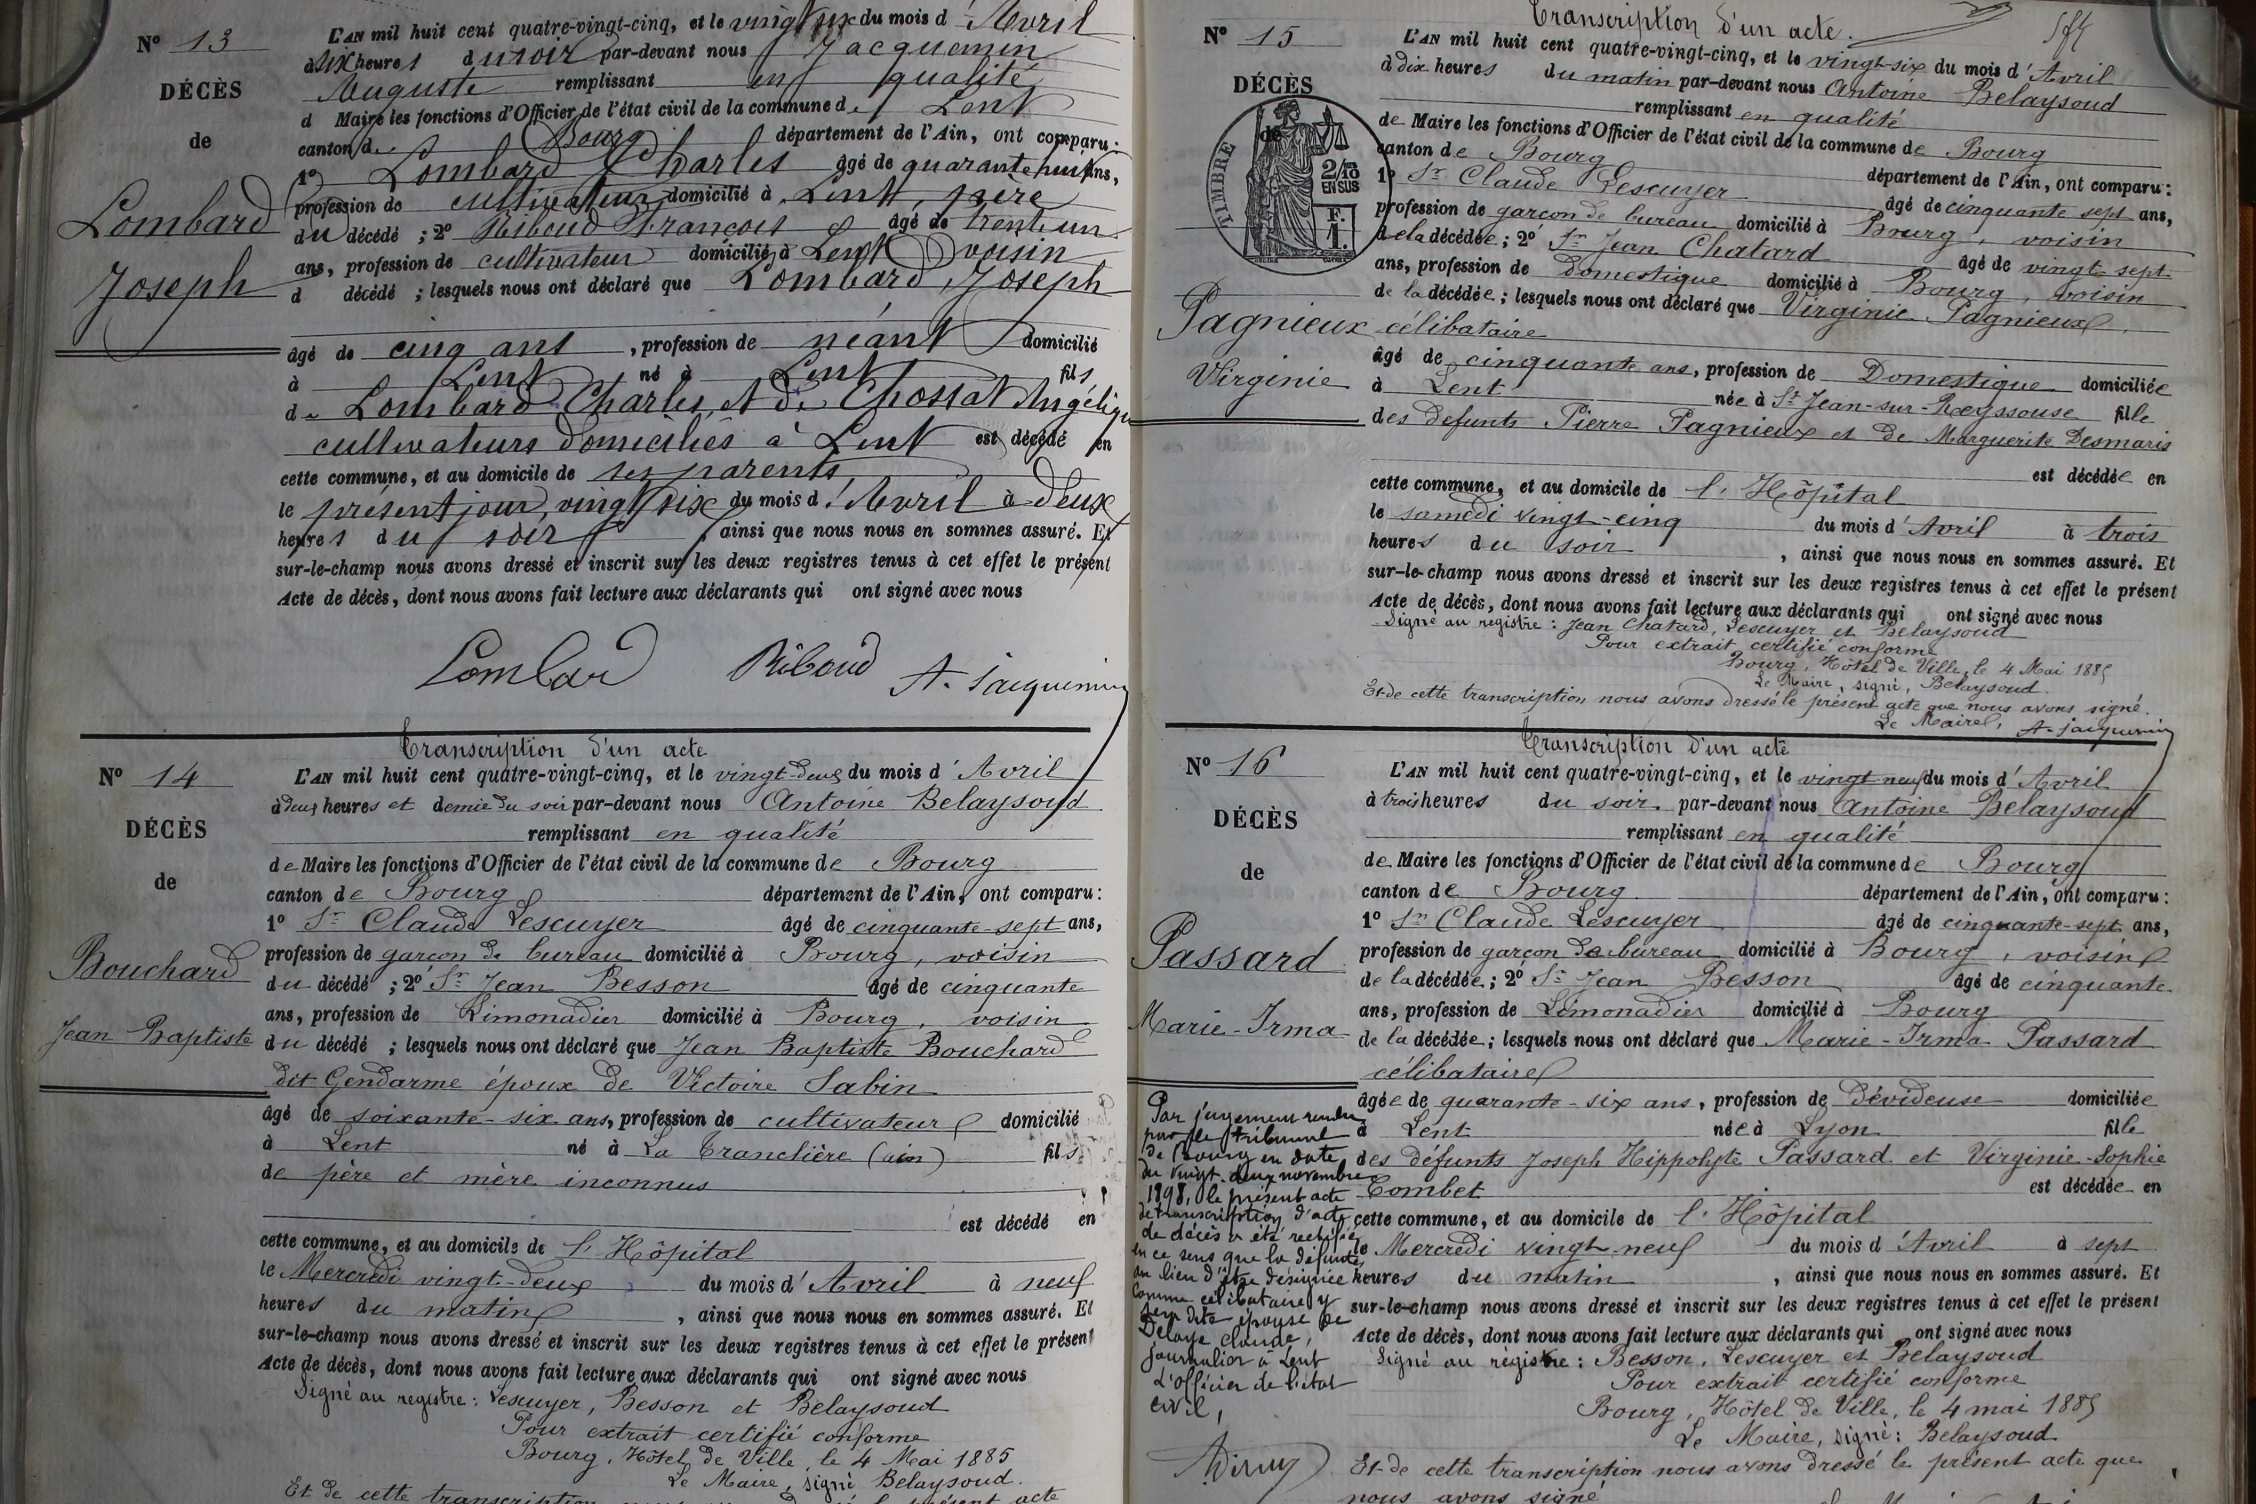 Nº 13
DÉCÈS
de
Lombard
Joseph
L'AN mil huit cent quatre-vingt-cinq, et le vingt six du mois d'Avril
à six heures du soir par-devant nous Jacquemin
Auguste remplissant en qualité
d Maire les fonctions d'Officier de l'état civil de la commune de Lent
canton de Bourg département de l'Ain, ont comparu:
1º Lombard Charles âgé de quarante huit ans,
profession de cultivateur domicilié à Lent, père
du décédé ; 2º Riboud François âgé de trente un
ans, profession de cultivateur domicilié à Lent voisin
d décédé ; lesquels nous ont déclaré que Lombard, Joseph
âgé de cinq ans , profession de néant domicilié
à Lent né à Lent fils
de Lombard Charles, et de Chossat Angélique
cultivateurs domiciliés à Lent est décédé en
cette commune, et au domicile de ses parents
le présent jour, vingt six du mois d'Avril à deux
heures du soir , ainsi que nous nous en sommes assuré. Et
sur-le-champ nous avons dressé et inscrit sur les deux registres tenus à cet effet le présent
Acte de décès, dont nous avons fait lecture aux déclarants qui ont signé avec nous
Lombard Riboud A. Jacquemin
Nº 14
DÉCÈS
de
Bouchard
Jean Baptiste
Transcription d'un acte
L'AN mil huit cent quatre-vingt-cinq, et le vingt-deux du mois d'Avril
à deux heures et demie du soir par-devant nous Antoine Belaysoud
remplissant en qualité
de Maire les fonctions d'Officier de l'état civil de la commune de Bourg
canton de Bourg département de l'Ain, ont comparu:
1º Sr Claude Lescuyer âgé de cinquante-sept ans,
profession de garçon de bureau domicilié à Bourg, voisin
du décédé ; 2º Sr Jean Besson âgé de cinquante
ans, profession de Limonadier domicilié à Bourg, voisin
du décédé ; lesquels nous ont déclaré que Jean Baptiste Bouchard
dit Gendarme époux de Victoire Sabin
âgé de soixante-six ans, profession de cultivateur domicilié
à Lent né à La Tranclière (ain) fils
de père et mère inconnus
est décédé en
cette commune, et au domicile de l'Hôpital
le Mercredi vingt-deux du mois d'Avril à neuf
heures du matin , ainsi que nous nous en sommes assuré. Et
sur-le-champ nous avons dressé et inscrit sur les deux registres tenus à cet effet le présent
Acte de décès, dont nous avons fait lecture aux déclarants qui ont signé avec nous
Signé au registre : Lescuyer, Besson et Belaysoud
Pour extrait certifié conforme
Bourg, Hôtel de Ville, le 4 Mai 1885
Le Maire, signé Belaysoud.
Et de cette transcription nous le présent acte
Nº 15
DÉCÈS
de
TIMBRE
2/10 EN SUS
F. 1.
Pagnieux
Virginie
Transcription d'un acte.
L'AN mil huit cent quatre-vingt-cinq, et le vingt-six du mois d'Avril
à dix heures du matin par-devant nous Antoine Belaysoud
remplissant en qualité
de Maire les fonctions d'Officier de l'état civil de la commune de Bourg
canton de Bourg département de l'Ain, ont comparu:
1º Sr Claude Lescuyer âgé de cinquante sept ans,
profession de garçon de bureau domicilié à Bourg, voisin
de la décédée ; 2º Sr Jean Chatard âgé de vingt sept
ans, profession de domestique domicilié à Bourg, voisin
de la décédée ; lesquels nous ont déclaré que Virginie Pagnieux
célibataire
âgé de cinquante ans, profession de Domestique domiciliée
à Lent née à St Jean-sur-Reyssouse fille
des défunts Pierre Pagnieux et de Marguerite Desmaris
est décédée en
cette commune, et au domicile de l'Hôpital
le samedi vingt-cinq du mois d'Avril à trois
heures du soir , ainsi que nous nous en sommes assuré. Et
sur-le-champ nous avons dressé et inscrit sur les deux registres tenus à cet effet le présent
Acte de décès, dont nous avons fait lecture aux déclarants qui ont signé avec nous
Signé au registre : Jean Chatard, Lescuyer et Belaysoud
Pour extrait certifié conforme
Bourg, Hôtel de Ville, le 4 Mai 1885
Le Maire, signé, Belaysoud.
Et de cette transcription nous avons dressé le présent acte que nous avons signé.
Le Maire, A. Jacquemin
Nº 16
DÉCÈS
de
Passard
Marie-Irma
Par jugement rendu
par le tribunal
de Bourg en date
du vingt-deux novembre
1898, le présent acte
de transcription d'acte
de décès a été rectifié
en ce sens que la défunte
au lieu d'être désignée
comme célibataire y
sera dite épouse de
Delaye Claude,
journalier à Lent
L'officier de l'état
civil,
Transcription d'un acte
L'AN mil huit cent quatre-vingt-cinq, et le vingt-neuf du mois d'Avril
à trois heures du soir par-devant nous Antoine Belaysoud
remplissant en qualité
de Maire les fonctions d'Officier de l'état civil de la commune de Bourg
canton de Bourg département de l'Ain, ont comparu:
1º Sr Claude Lescuyer âgé de cinquante-sept ans,
profession de garçon de bureau domicilié à Bourg, voisin
de la décédée ; 2º Sr Jean Besson âgé de cinquante
ans, profession de Limonadier domicilié à Bourg
de la décédée ; lesquels nous ont déclaré que Marie-Irma Passard
célibataire
âgée de quarante-six ans, profession de dévideuse domiciliée
à Lent née à Lyon fille
des défunts Joseph Hippolyte Passard et Virginie-Sophie
Combet est décédée en
cette commune, et au domicile de l'Hôpital
le Mercredi vingt neuf du mois d'Avril à sept
heures du matin , ainsi que nous nous en sommes assuré. Et
sur-le-champ nous avons dressé et inscrit sur les deux registres tenus à cet effet le présent
Acte de décès, dont nous avons fait lecture aux déclarants qui ont signé avec nous
Signé au registre : Besson, Lescuyer et Belaysoud
Pour extrait certifié conforme
Bourg, Hôtel de Ville, le 4 mai 1885
Le Maire, signé : Belaysoud
Et de cette transcription nous avons dressé le présent acte que
nous avons signé